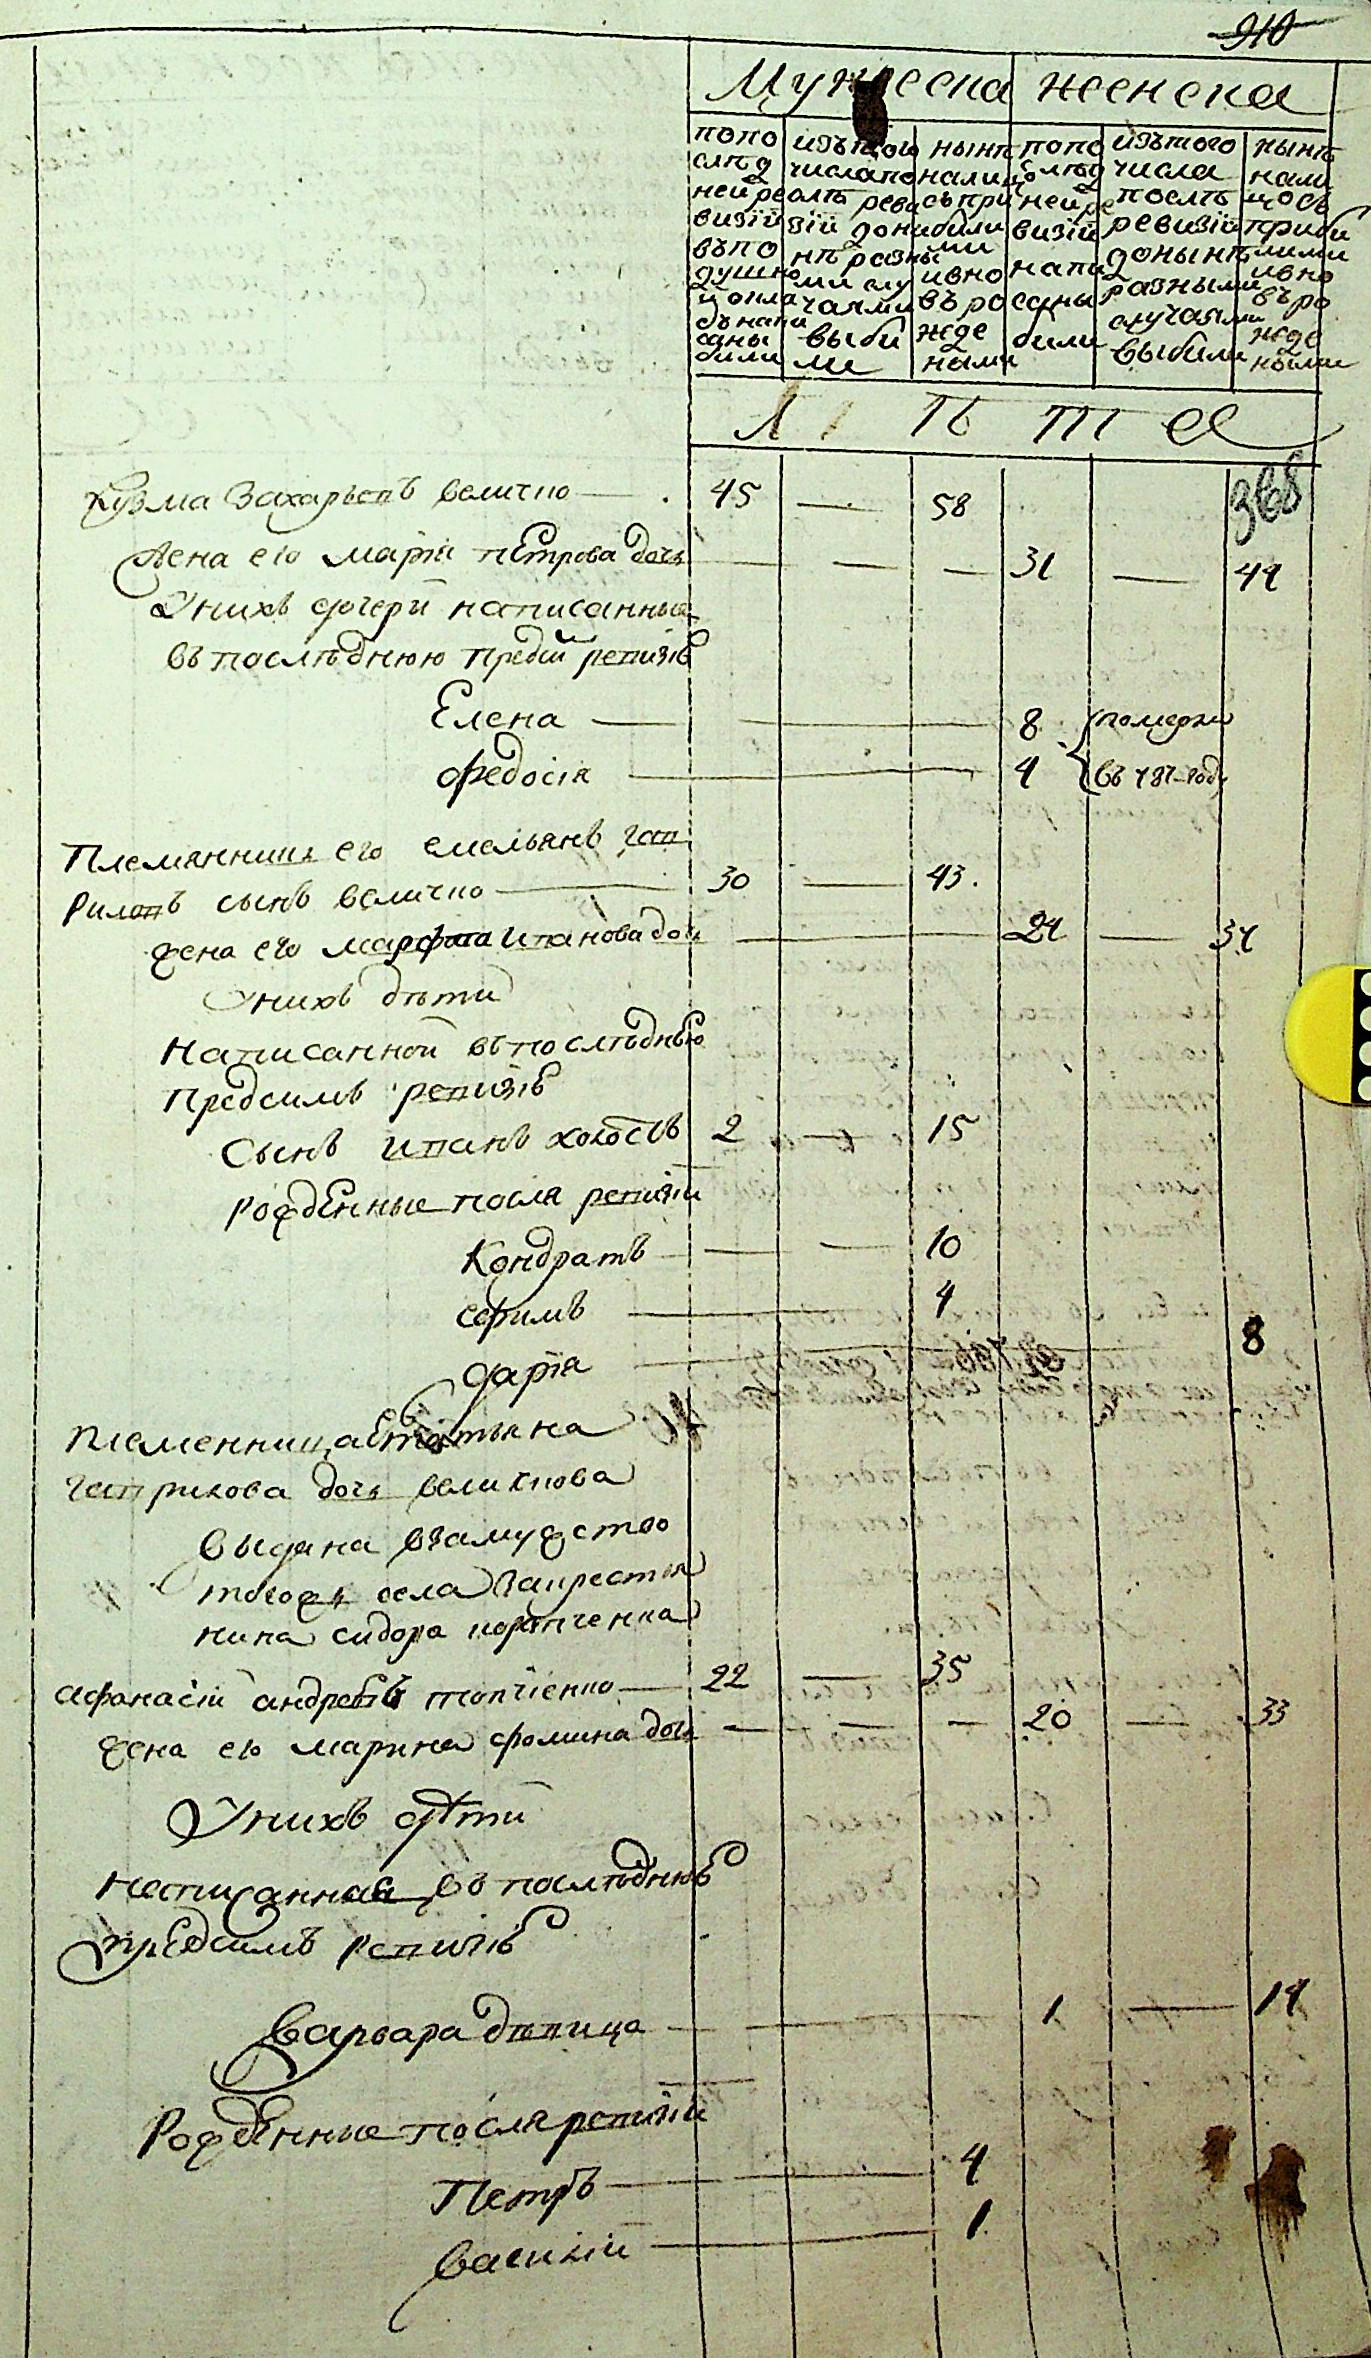 910
Мужеска женска
попо слѣд ней ре визіи въпо душно ц окла дъ напи саны били
изъ того числа по слѣ реви зіи до ни нѣ разны ми слу чаями выби ли
нынѣ налицо съ при били ми ивно въ ро жде ными
попо слѣд ней ре визіи напи саны били
изъ того числа послѣ ревизіи донынѣ разными случаями выбили
нынѣ нали цо съ приби лими ивно въ ро жде ными
Л Ѣ Т А
368
Кузма Захарьевъ величко — 45 — 58
Жена его марія пЕтрова дочь — — — 31 — 44
Унихъ дочери написанные
въ послѣднюю предсй ревизіѣ
Елена — 8 померли
Федосія — 4 въ 787 году
Племянникъ его емельянъ гав
риловъ сынъ величко — 30 — 43.
жена его марфа Иванова дочь — 24 — 34
Унихъ дѣти
Написанной въ послѣднюю
предсимъ ревизіѣ
Сынъ Иванъ холостъ 2 — 15
рожденные посля ревизіи
Кондратъ — — 10
ефимъ — 4
дарія — 8
племенница татьяна
гаврилова дочь величкова
выдана взамужство
тогожъ села закрестья
нина сидора
афанасій андреевъ — 22 — 35
жена его марина фомина дочь — — — 20 — 33
Унихъ дѣти
написанная въ послѣднюѣ
предсимъ ревизіѣ
Варвара дѣвица — 1 — 14
Рожденные посля ревизіи
Петръ — 4
василій — 1